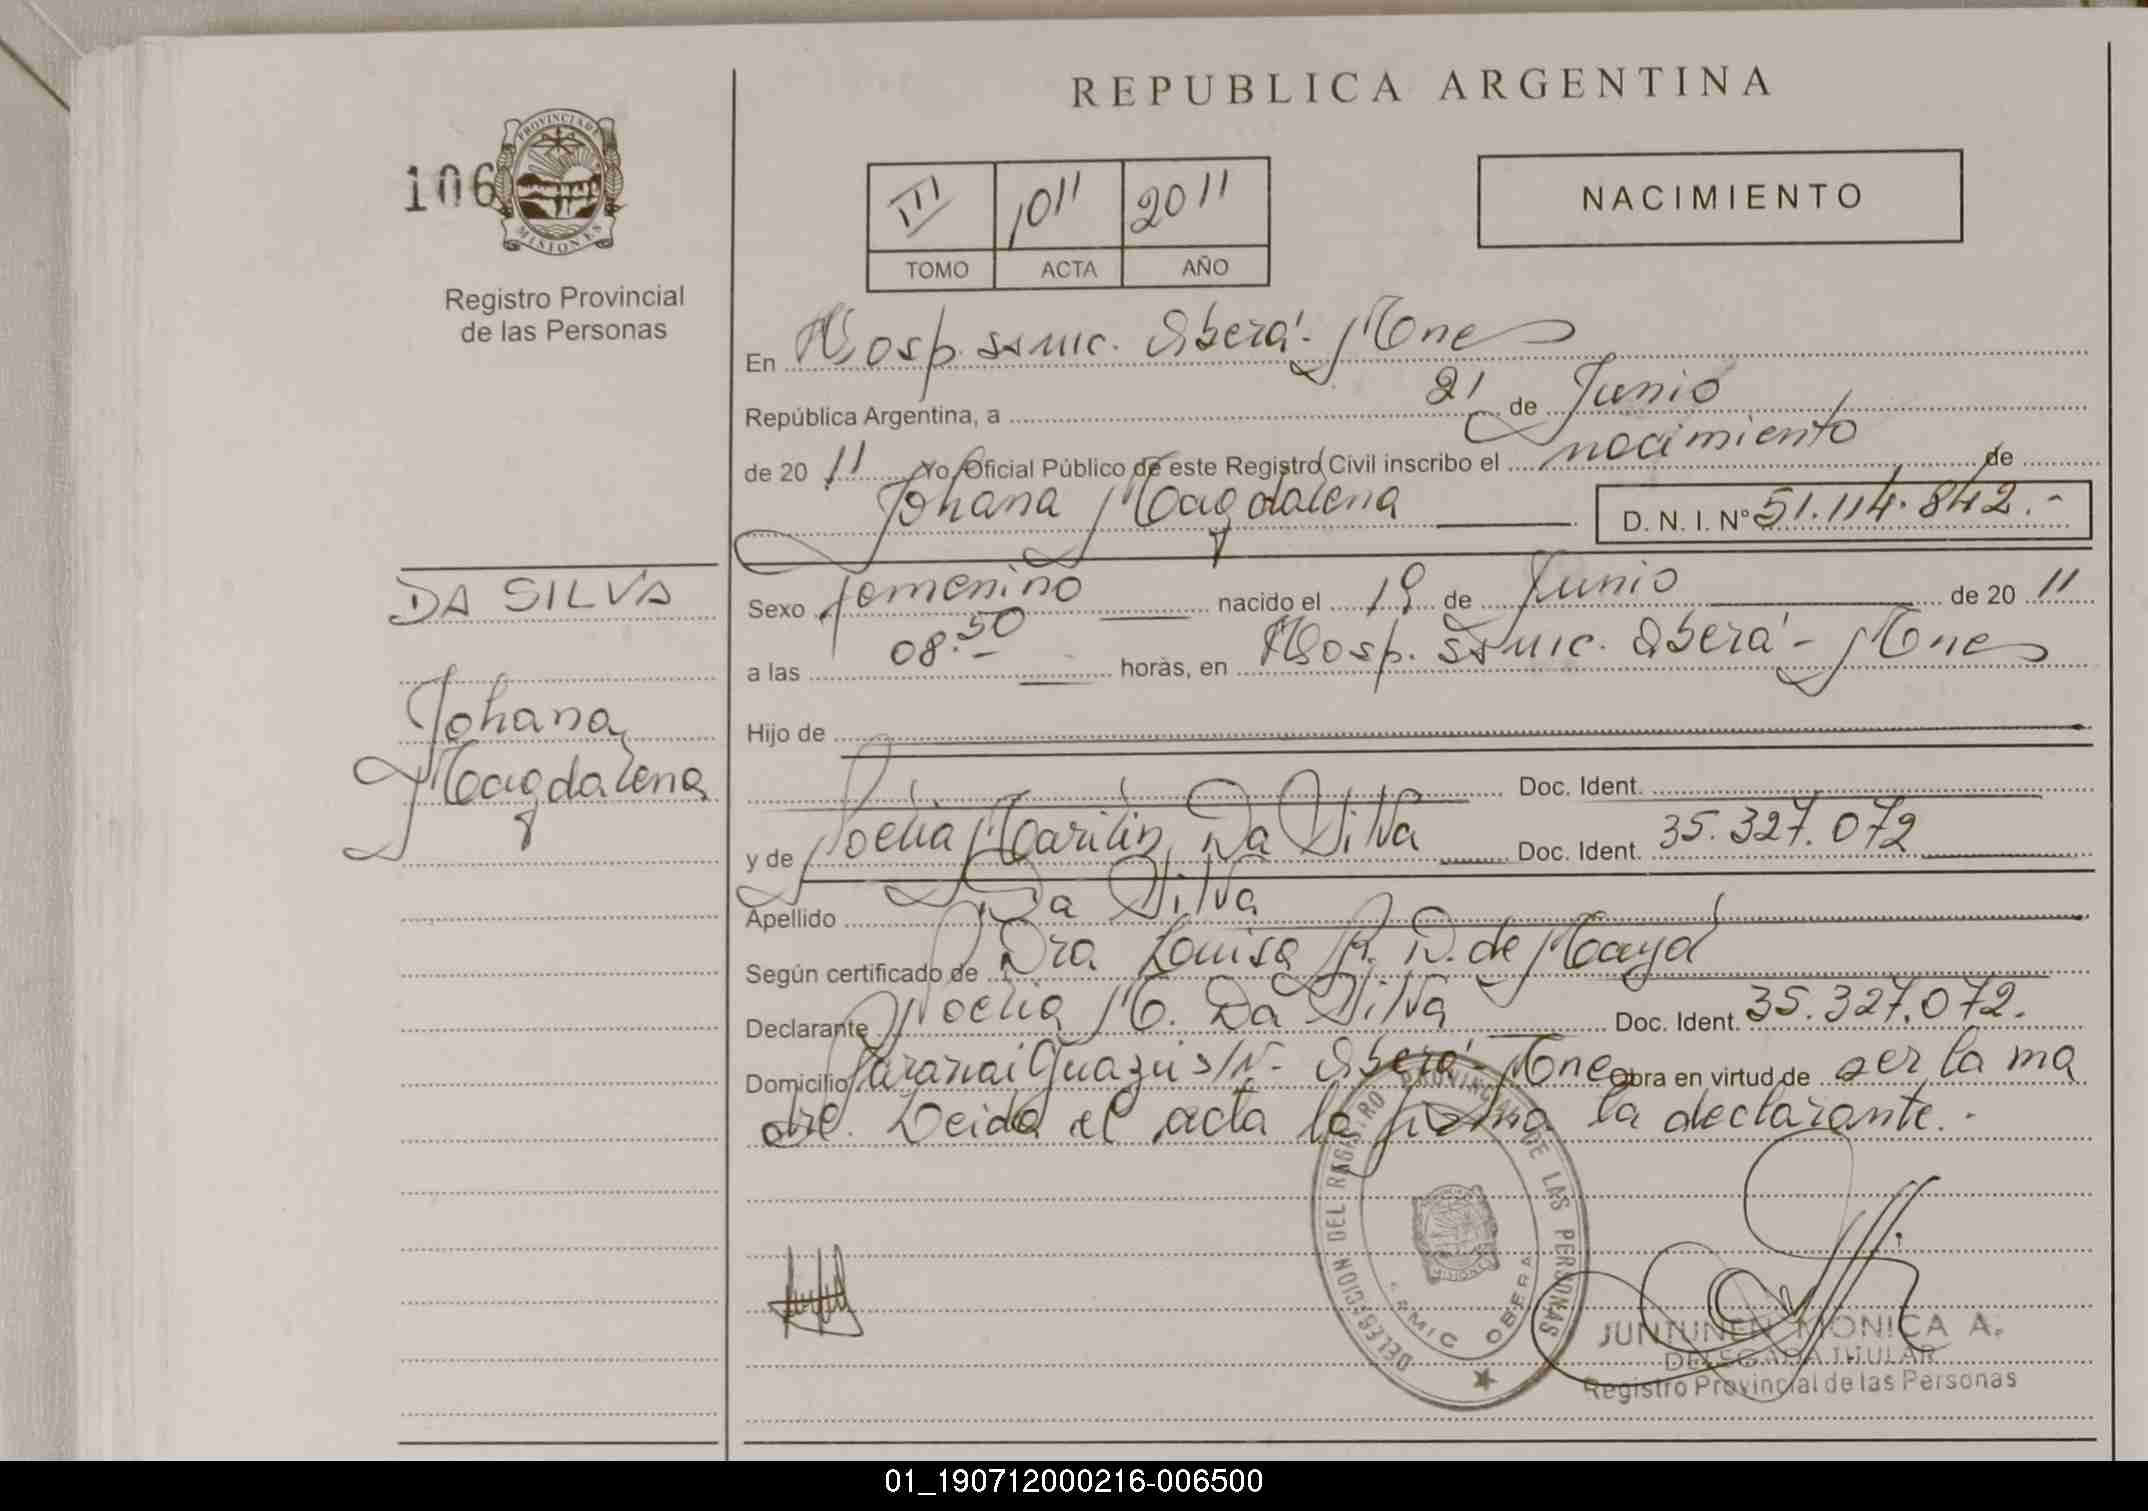 REPUBLICA ARGENTINA
106
PROVINCIA DE
MISIONES
Registro Provincial
de las Personas
III 1011 2011
TOMO ACTA AÑO
NACIMIENTO
En Hosp. ssmic. Oberá - Mnes
República Argentina, a 21 de Junio
de 20 11 Yo Oficial Público de este Registro Civil inscribo el nacimiento de
Johana Magdalena D. N. I. Nº 51.114.842.-
DA SILVA
Johana
Magdalena
Sexo femenino nacido el 19 de Junio de 20 11
a las 08:50 horas, en Hosp. ssmic. Oberá - Mnes
Hijo de
Doc. Ident.
y de Noelia Marilin Da Silva Doc. Ident. 35.327.072
Apellido Da Silva
Según certificado de Dra. Louisa R. D. de Mayol
Declarante Noelia M. Da Silva Doc. Ident. 35.327.072.
Domicilio Paranai Guazú s/N - Oberá - Mnes Obra en virtud de ser la ma
dre. Leida el acta la firma la declarante.-
DELEGACION DEL REGISTRO PROVINCIAL DE LAS PERSONAS
OBERA
MISIONES
JUNTUNEN MONICA A.
DELEGADA TITULAR
Registro Provincial de las Personas
01_190712000216-006500